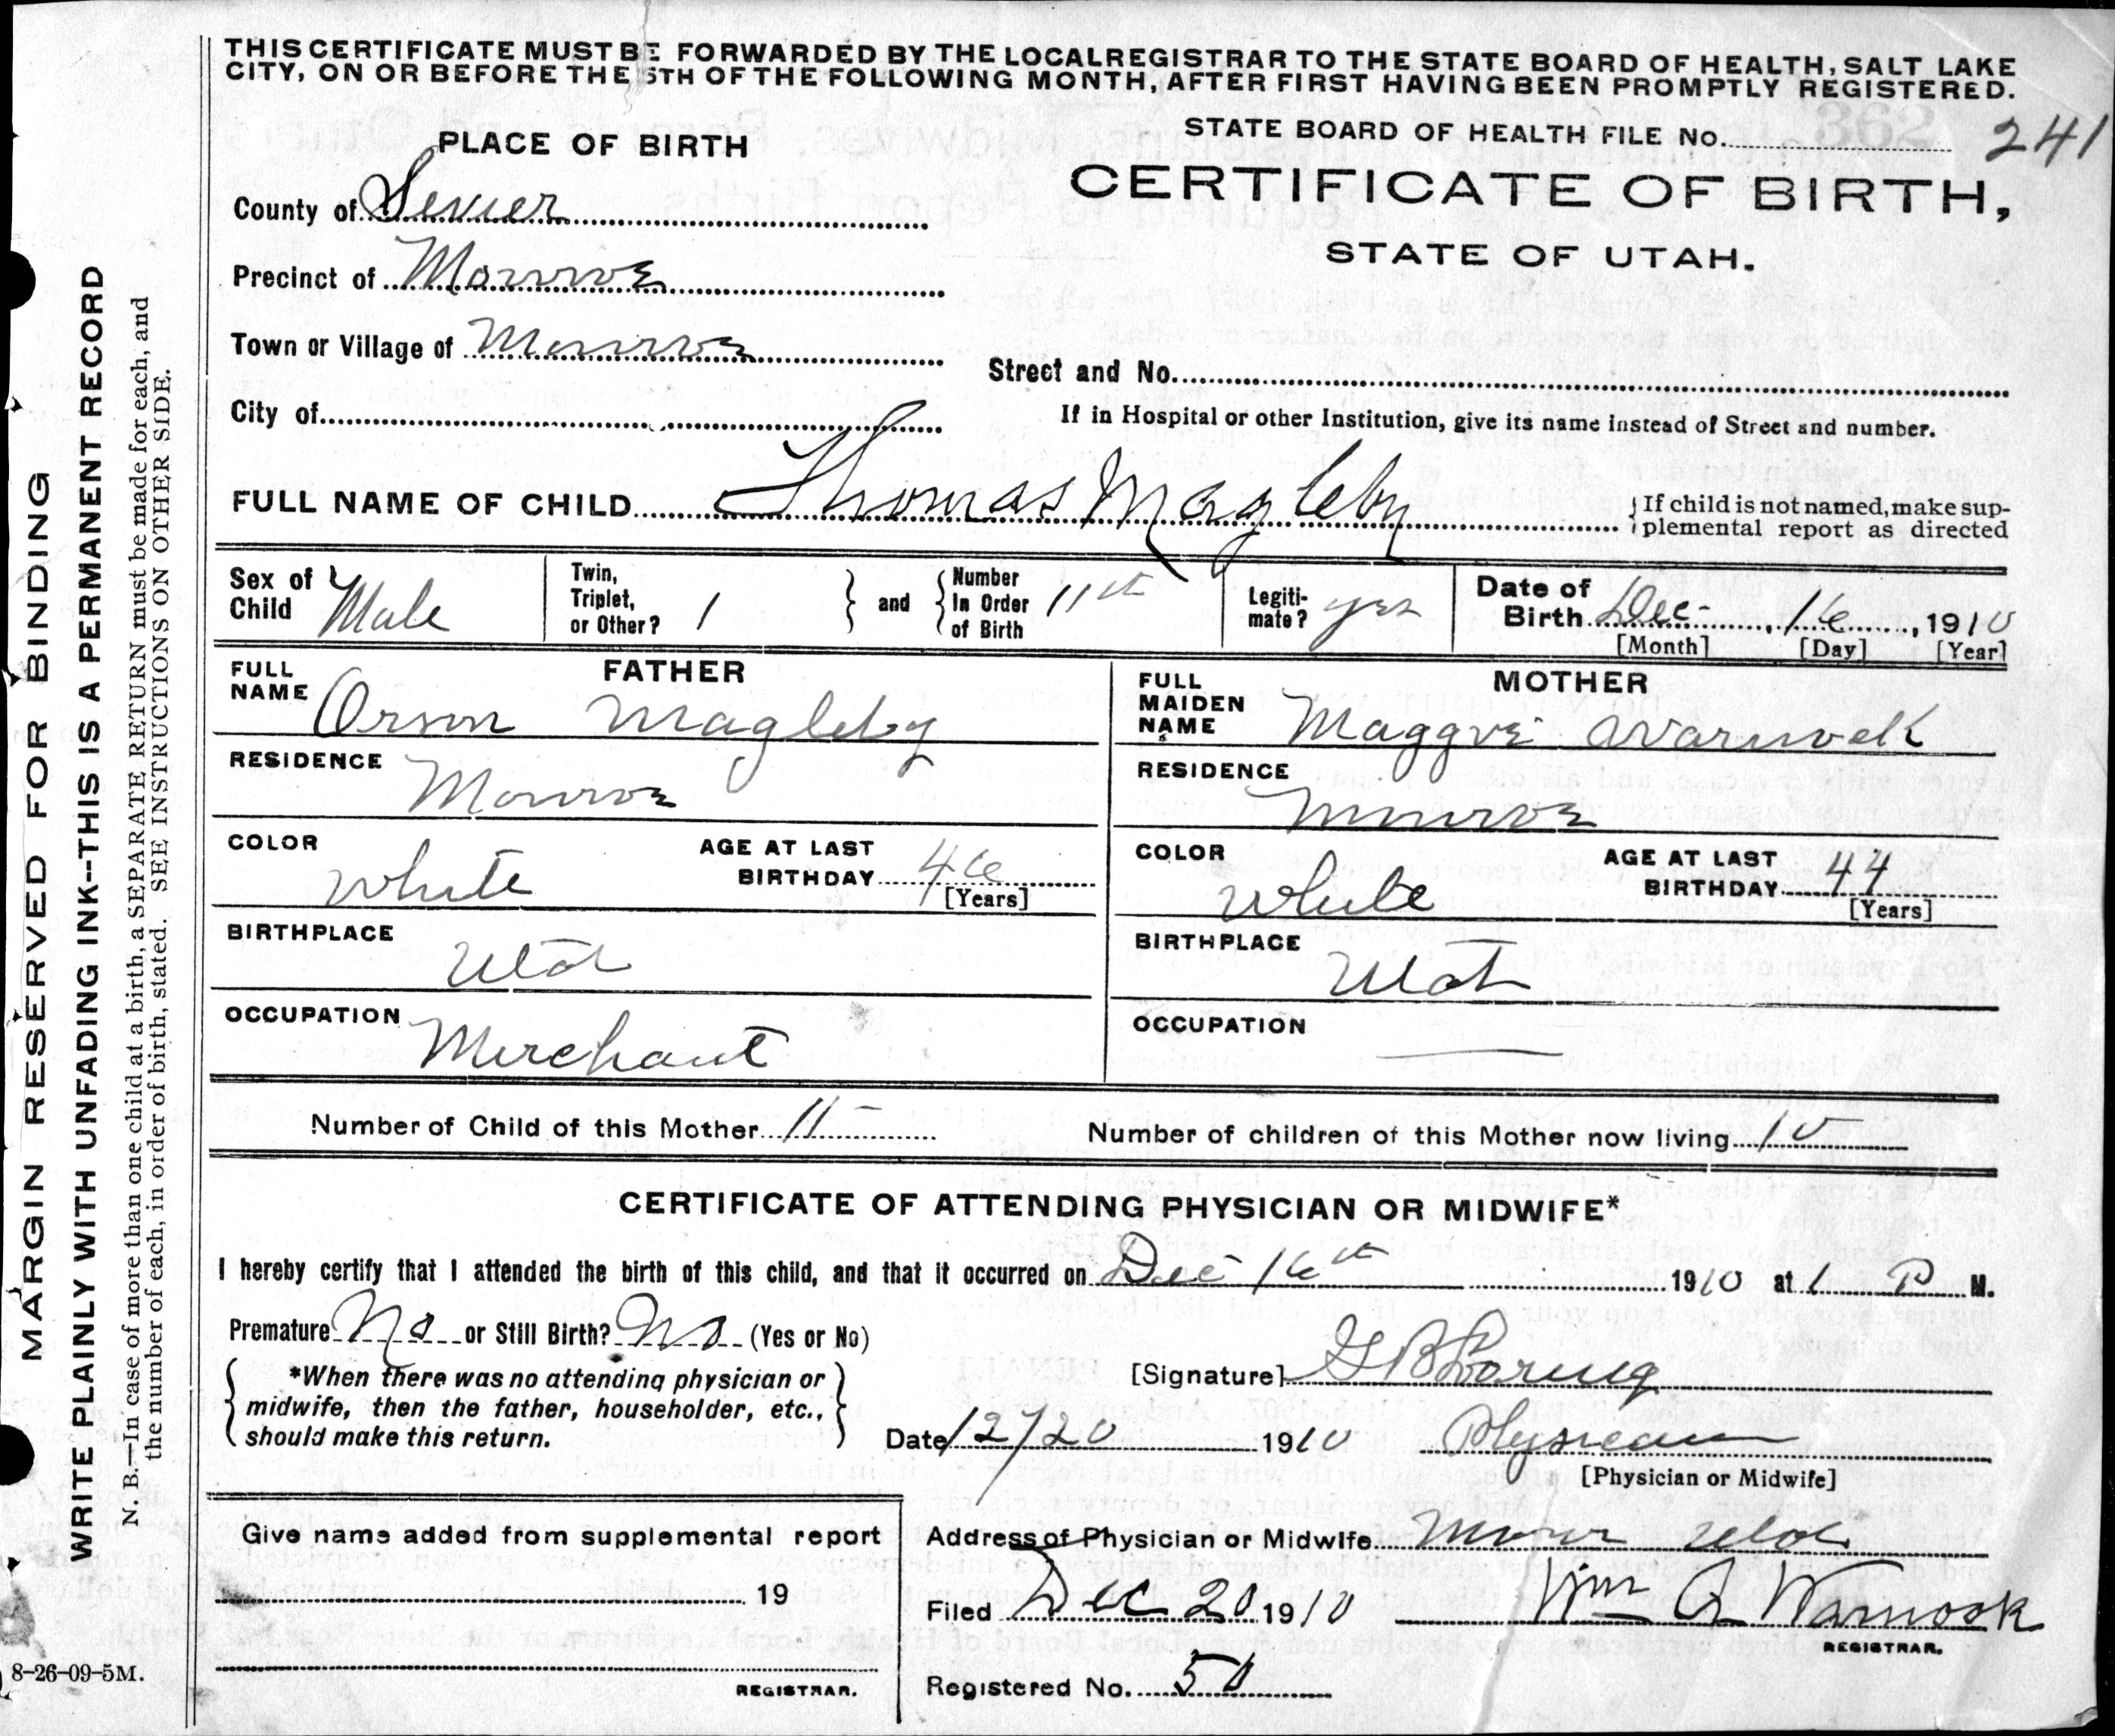 THIS CERTIFICATE MUST BE FORWARDED BY THE LOCAL REGISTRAR TO THE STATE BOARD OF HEALTH, SALT LAKE
CITY, ON OR BEFORE THE 5TH OF THE FOLLOWING MONTH, AFTER FIRST HAVING BEEN PROMPTLY REGISTERED.
PLACE OF BIRTH
STATE BOARD OF HEALTH FILE No. 362 241
CERTIFICATE OF BIRTH,
STATE OF UTAH.
County of Sevier
Precinct of Monroe
Town or Village of Monroe
Street and No.
City of
If in Hospital or other Institution, give its name instead of Street and number.
FULL NAME OF CHILD Thomas Magleby
If child is not named, make sup-
plemental report as directed
Sex of Child Male
Twin, Triplet, or Other? 1
and
Number In Order of Birth 11th
Legiti-mate? yes
Date of Birth Dec 16, 1910
[Month] [Day] [Year]
FATHER
FULL NAME Orson Magleby
RESIDENCE Monroe
COLOR White
AGE AT LAST BIRTHDAY 46
[Years]
BIRTHPLACE Utah
OCCUPATION Merchant
MOTHER
FULL MAIDEN NAME Maggie Warnock
RESIDENCE Monroe
COLOR White
AGE AT LAST BIRTHDAY 44
[Years]
BIRTHPLACE Utah
OCCUPATION
Number of Child of this Mother 11
Number of children of this Mother now living 10
CERTIFICATE OF ATTENDING PHYSICIAN OR MIDWIFE*
I hereby certify that I attended the birth of this child, and that it occurred on Dec 16th 1910 at 1 P M.
Premature No or Still Birth? No (Yes or No)
*When there was no attending physician or
midwife, then the father, householder, etc.,
should make this return.
[Signature] G B Loring
Date 12/20 1910 Physician
[Physician or Midwife]
Give name added from supplemental report
19
REGISTRAR.
Address of Physician or Midwife Monroe Utah
Filed Dec 20 1910 Wm A Warnock
REGISTRAR.
Registered No. 50
8-26-09-5M.
MARGIN RESERVED FOR BINDING
WRITE PLAINLY WITH UNFADING INK--THIS IS A PERMANENT RECORD
N. B.—In case of more than one child at a birth, a SEPARATE RETURN must be made for each, and
the number of each, in order of birth, stated. SEE INSTRUCTIONS ON OTHER SIDE.